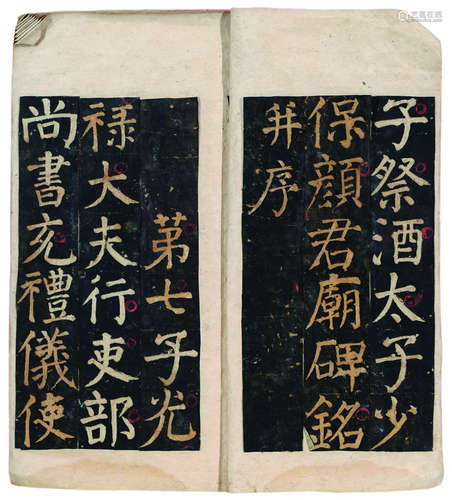 子祭酒太子少
保顔君廟碑銘
并序
第七子光
禄大夫行吏部
尚書充禮儀使